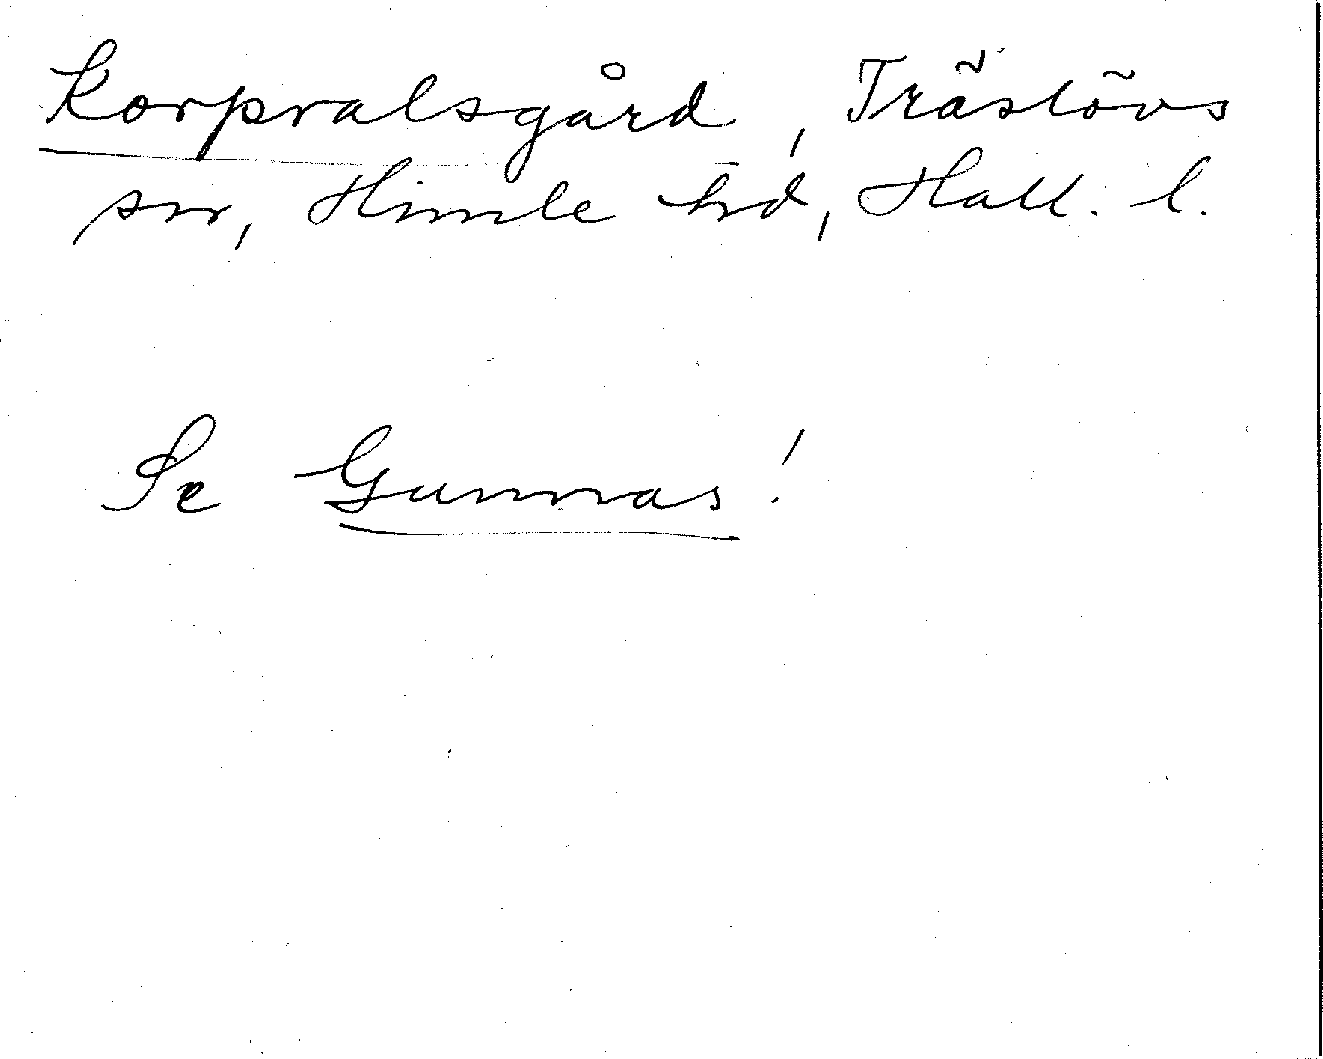 Korpralsgård, Träslövs
sn, Himle hd, Hall. l.
Se Gunnas!